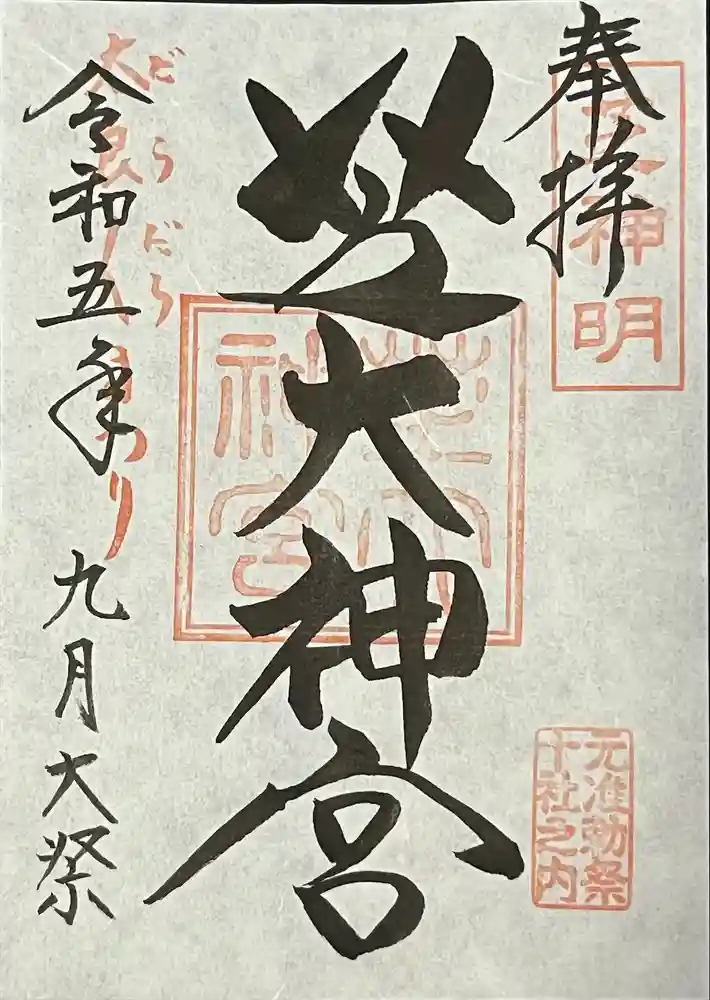 奉拝
芝神明
芝大神宮
芝大神宮
元准勅祭
十社之内
令和五年九月大祭
だらだら